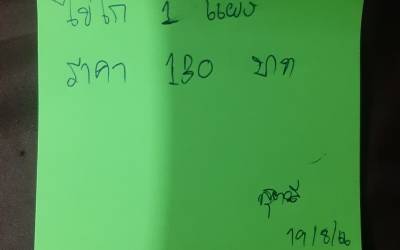 ไข่ไก่ 1 แผง
ราคา 130 บาท
19/8/66